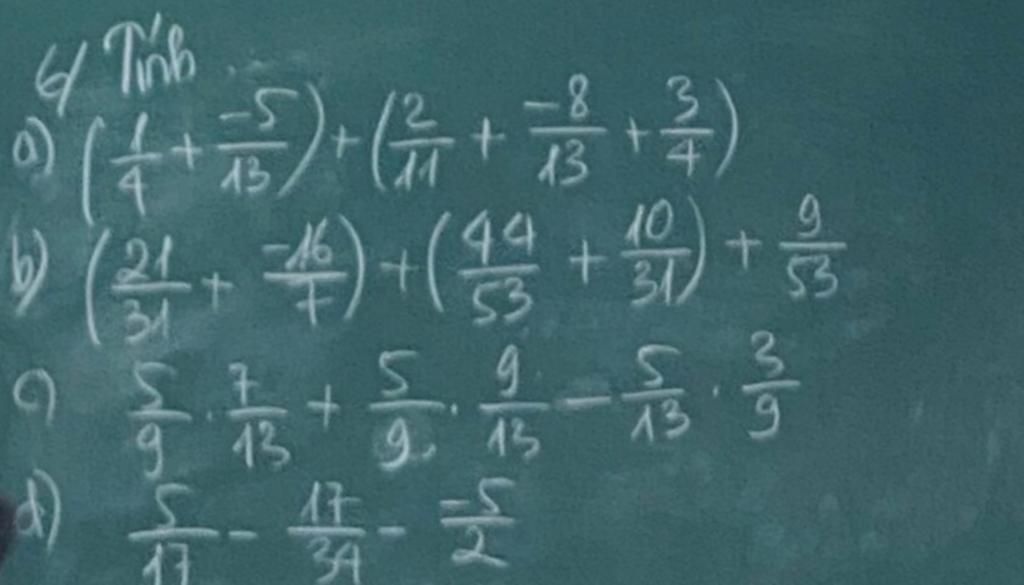 6/ Tính
a) (1/4 + -5/13) + (2/11 + -8/13 + 3/4)
b) (21/31 + -16/7) + (44/53 + 10/31) + 9/53
c) 5/9 . 7/13 + 5/9 . 9/13 - 5/13 . 3/9
d) 5/17 - 17/34 - -5/2